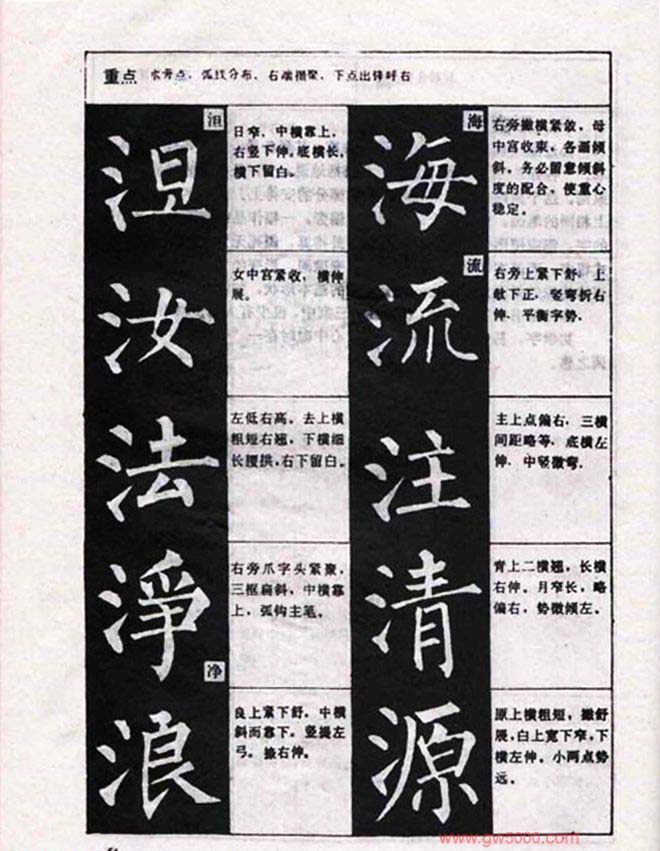 重点 水旁点，弧线分布，右端攒聚，下点出锋呼右
泹
泹
日窄，中横靠上，
右竖下伸，底横长，
横下留白。
汝
女中宫紧收，横伸
展。
法
左低右高。去上横
粗短右翘，下横细
长腰拱，右下留白。
淨
净
右旁爪字头紧聚，
三框扁斜，中横靠
上，弧钩主笔。
浪
良上紧下舒，中横
斜而靠下。竖提左
弓。捺右伸。
海
海
右旁撇横紧敛，母
中宫收束，各画倾
斜，务必留意倾斜
度的配合，使重心
稳定。
流
流
右旁上紧下舒，上
敧下正，竖弯折右
伸，平衡字势。
注
主上点偏右，三横
间距略等，底横左
伸，中竖微弯。
清
青上二横翘，长横
右伸。月窄长，略
偏右，势微倾左。
源
原上横粗短，撇舒
展，白上宽下窄，下
横左伸。小两点势
远。
www.gw5000.com